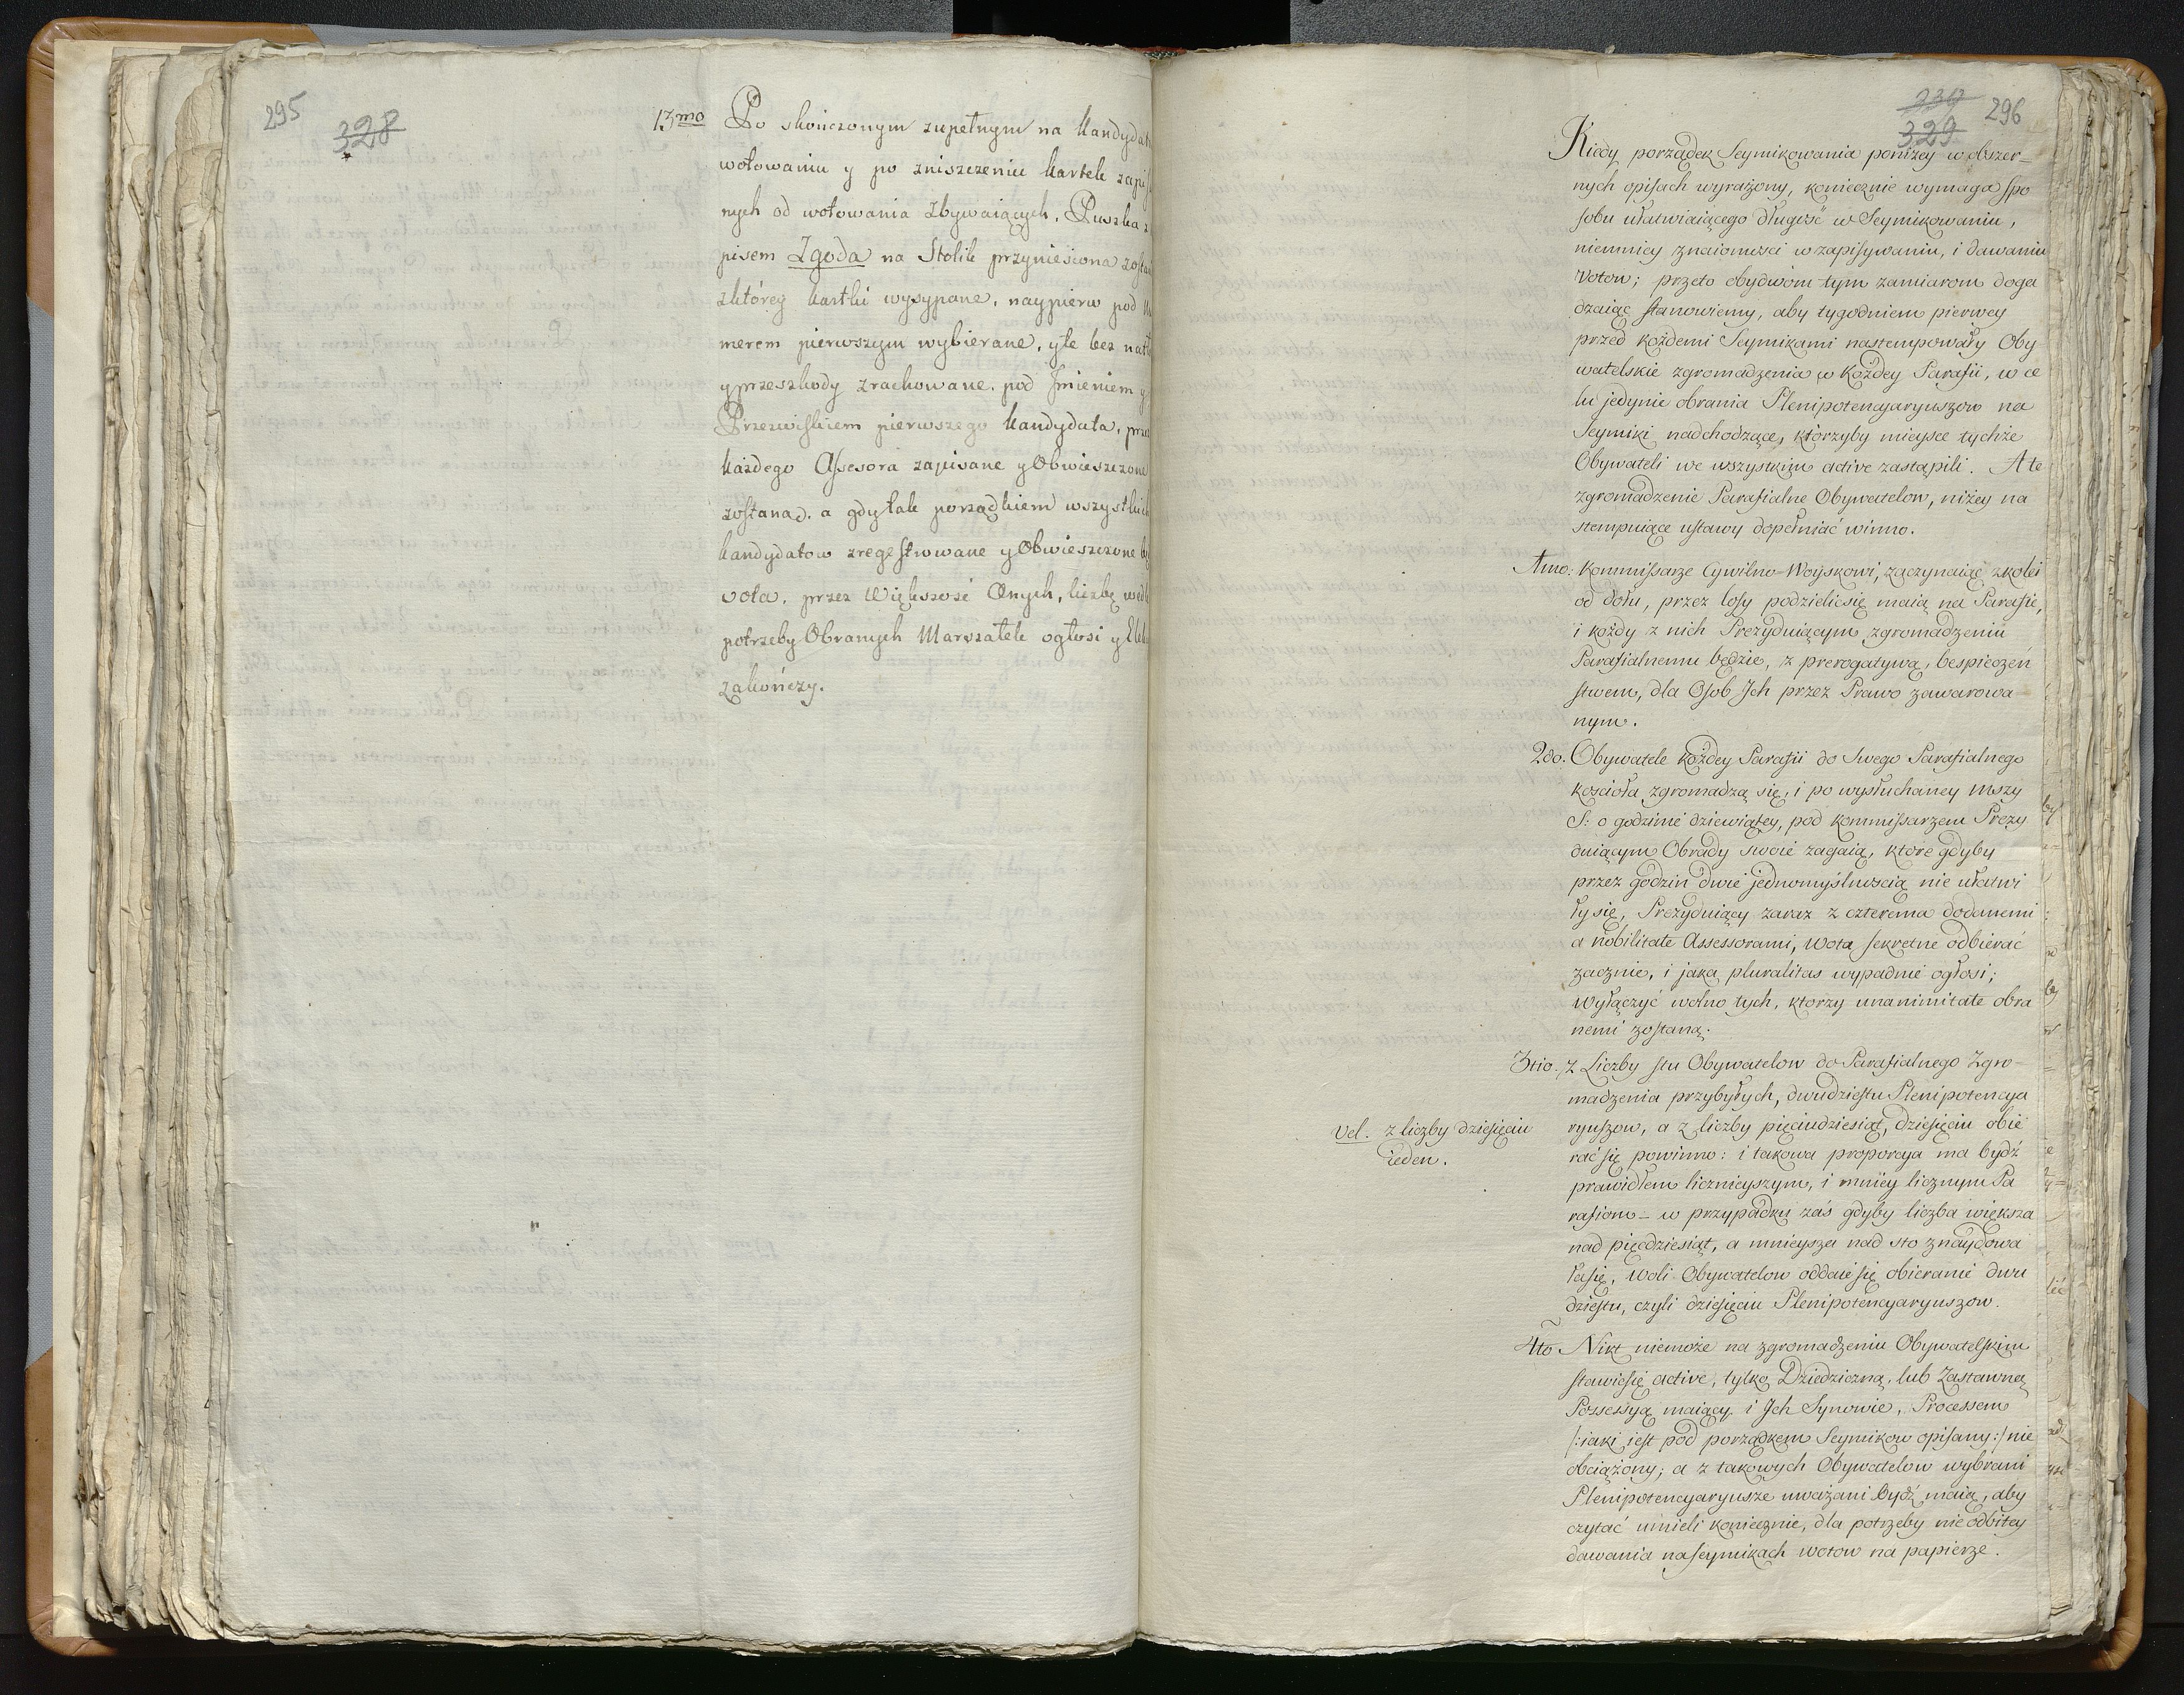 295
328
13mo Po skończonym zupełnym na kandydat
wotowaniu y po zniszczeniu kartek zapis
nych od wotowania zbywaiących. Puszka z
pisem Zgoda na Stolik przyniesiona zosta
z którey kartki wysypane, naypierw pod Nu
merem pierwszym wybierane, y te bez natł
y przeszkody zrachowane. pod Jmieniem y
Przezwiskiem pierwszego kandydata, prze
każdego Assesora zapisane y Obwieszczone
zostaną. a gdy tak porządkiem wszystkich
kandydatow zregestrowane y Obwieszczone bę
vota, przez Większość Onych, liczbę wedł
potrzeby Obranych Marszałek ogłosi y Elek
zakończy.
329
296
Kiedy porządek Seymikowania poniżey w obszer-
nych opisach wyrażony, koniecznie wymaga spo
sobu ułatwiaiącego długość w Seymikowaniu,
niemniey znaiomości w zapisywaniu, i dawaniu
Votow; przeto obydwom tym zamiarom doga
dzaiąc stanowiemy, aby tygodniem pierwey
przed każdemi Seymikami nastempowały Oby
watelskie zgromadzenia w każdey Parafii, w ce
lu jedynie obrania Plenipotencyaryuszow na
Seymiki nadchodzące, ktorzyby mieysce tychże
Obywateli we wszystkim active zastąpili. A te
zgromadzenie Parafialne Obywatelow, niżey na
stempuiące ustawy dopełniać winno.
1mo: Kommissarze Cywilno-Woyskowi, zaczynaiąc z kolei
od dołu, przez losy podzielić się maią na Parafie,
i każdy z nich Prezyduiącym zgromadzeniu
Parafialnemu będzie, z prerogatywą, bespieczeń
stwem, dla Osob Jch przez Prawo zawarowa-
nym.
2do. Obywatele każdey Parafii do Swego Parafialnego
kościoła zgromadzą się, i po wysłuchaney Mszy
S: o godzinie dziewiątey, pod kommissarzem Prezy
duiącym Obrady swoie zagaią, ktore gdyby
przez godzin dwie jednomyślnością nie ułatwi
ły się, Prezyduiący zaraz z czterema dodanemi
a nobilitate Assessorami, wota sekretne odbierać
zacznie, i jaka pluralitas wypadnie ogłosi;
wyłączyć wolno tych, ktorzy unanimitate obra
nemi zostaną.
3tio. z Liczby stu Obywatelow do Parafialnego Zgro-
madzenia przybyłych, dwudziestu Plenipotencya
ryuszow, a z liczby pięciudziesiąt, dziesięciu obie
rać się powinno: i takowa proporcya ma bydź
prawidłem licznieyszym, i mniey licznym Pa
rafiom – w przypadku zaś gdyby liczba większa
nad pięćdziesiąt, a mnieysza nad sto znaydowa
ła się, woli Obywatelow oddaie się obieranie dwu
dziestu, czyli dziesięciu Plenipotencyaryuszow.
Vel. z liczby dziesięciu
ieden.
4to Nikt niemoże na zgromadzeniu Obywatelskim
stawić się active, tylko Dziedziczną, lub Zastawną
Possessyą maiący i Jch Synowie, Processem
/:iaki iest pod porządkem Seymikow opisany:/ nie
obciążony; a z takowych Obywatelow wybrani
Plenipotencyaryusze uważani bydź maią, aby
czytać umieli koniecznie, dla potrzeby nie odbitey
dawania na seymikach wotow na papierze.